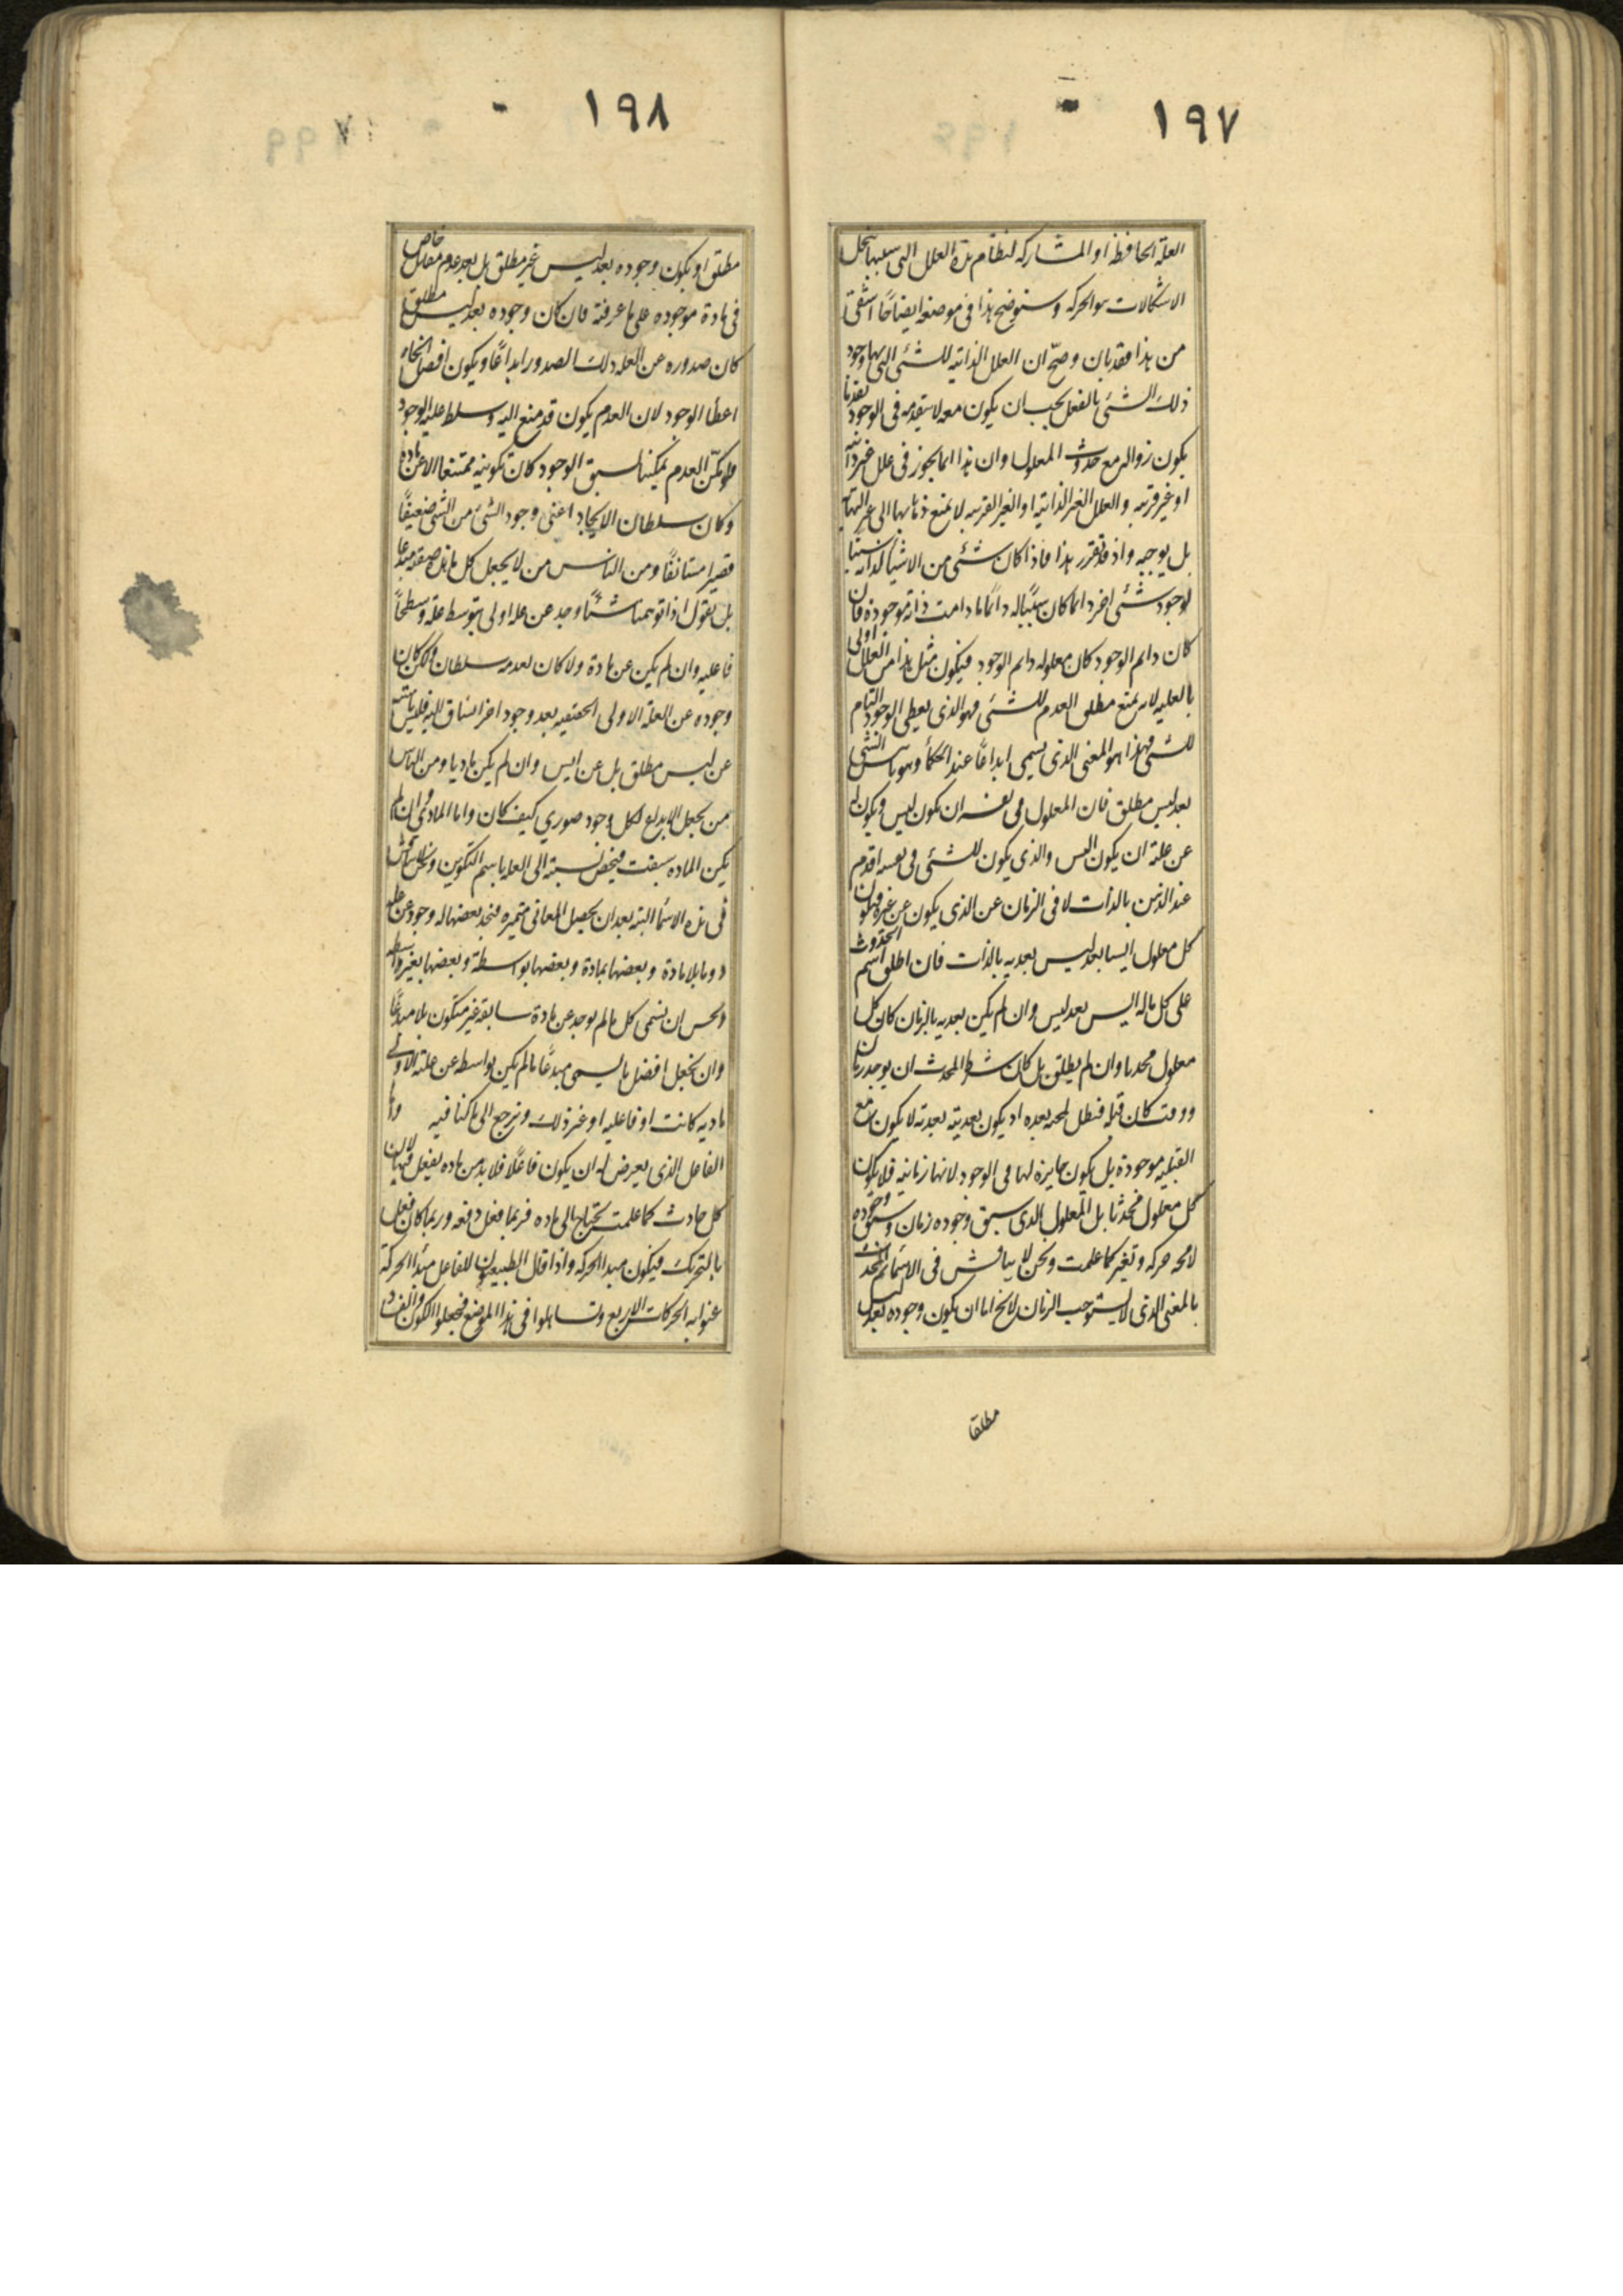 ١٩٧
العلة الحافظة او المشاركة لنظام هذه العلل التى بسببها ينحل
الاشكالات هو الحركة وسنوضح هذا فى موضعه ايضاحًا اشفى
من هذا فقد بان وصحّ ان العلل الذاتية للشئ التى بها وجود
ذلك الشئ بالفعل يجب ان يكون معه لا يتقدمه فى الوجود تقدما
يكون زواله مع حدوث المعلول وان هذا انما يجوز فى علل غير ذاتية
او غير قريبة والعلل الغير الذاتية او الغير القريبة لا يمنع ذهابها الى غير النهاية
بل يوجبه واذ قد تقرر هذا فاذا كان شئ من الاشياء لذاته سببًا
لوجود شئ اخر دائما كان سببًا له دائما ما دامت ذاته موجودة فان
كان دايم الوجود كان معلوله دايم الوجود فيكون مثل هذا من العلل اولى
بالعلية لانه يمنع مطلق العدم للشئ فهو الذى يعطى الوجود التام
للشئ فهذا هو المعنى الذى يسمى ابداعًا عند الحكماء وهو تاييس الشئ
بعد ليس مطلق فان المعلول فى نفسه ان يكون ليس ويكون له
عن علته ان يكون ايس والذى يكون للشئ فى نفسه اقدم
عند الذهن بالذات لا فى الزمان عن الذى يكون عن غيره فيكون
كل معلول ايسا بعد ليس بعدية بالذات فان اطلق اسم الحدوث
على كل ماله ايس بعد ليس وان لم يكن بعدية بالزمان كان كل
معلول محدثا وان لم يطلق بل كان شرط المحدث ان يوجد زمان
ووقت كان قبله فبطل لمجيئه بعده اذ يكون بعديته بعدية لا يكون مع
القبلية موجودة بل يكون حايزة لها فى الوجود لانها زمانية فلا يكون
كل معلول محدثا بل المعلول الذى سبق وجوده زمان وسبق وجوده
لا محة حركة وتغير كما علمت ونحن لا نناقش فى الاسماء ثم المحدث
بالمعنى الذى لا يستوجب الزمان لا يخ اما ان يكون وجوده بعد ليس
مطلقا
١٩٨
مطلق او يكون وجوده بعد ليس غير مطلق بل بعد عدم مقابل خاص
فى مادة موجودة على ما عرفته فان كان وجوده بعد ليس مطلق
كان صدوره عن العلة ذلك الصدور ابداعًا ويكون افضل انحاء
اعطاء الوجود لان العدم يكون قد منع البتة وسلط عليه الوجود
ولو مكن العدم تمكينا لسبق الوجود كان تكوينه ممتنعا الا عن مادة
وكان سلطان الايجاد اعنى وجود الشئ من الشئ ضعيفًا
قصيرا مستانفًا ومن الناس من لا يجعل كل ما هذه صفته مبدعا
بل يقول اذا توهمنا شيئًا وجد عن علة اولى بتوسط علة وسطى
فاعلية وان لم يكن عن مادة ولا كان لعدمه سلطان ولكن كان
وجوده عن العلة الاولى الحقيقية بعد وجود اخر انساق اليه فليس تاييسه
عن ليس مطلق بل عن ايس وان لم يكن ماديا ومن الناس
من يجعل الابداع لكل وجود صورى كيف كان واما المادى وان لم
يكن المادة سبقت فيخص نسبته الى العلة باسم التكوين ونحن لا نناقش
فى هذه الاسماء البتة بعد ان يحصل المعانى متميزة فنجد بعضها له وجود عن علة
دوما بلا مادة وبعضها بمادة وبعضها بواسطة وبعضها بغير واسطة
ويحسن ان نسمى كل ما لم يوجد عن مادة سابقة غير متكون بل مبدعًا
وان نجعل افضل ما يسمى مبدعًا ما لم يكن بواسطة عن علته الاولى
مادية كانت او فاعلية او غير ذلك ونرجع الى ما كنا فيه واما
الفاعل الذى يعرض له ان يكون فاعلًا فلا بد من مادة يفعل فيها لان
كل حادث كما علمت يحتاج الى مادة فربما فعل دفعة وربما كان فعل
بالتحريك فيكون مبدا الحركة واذا قال الطبيعيون للفاعل مبدا الحركة
عنوا به الحركات الاربع وتساهلوا فى هذا الموضع فجعلوا الكون والفساد